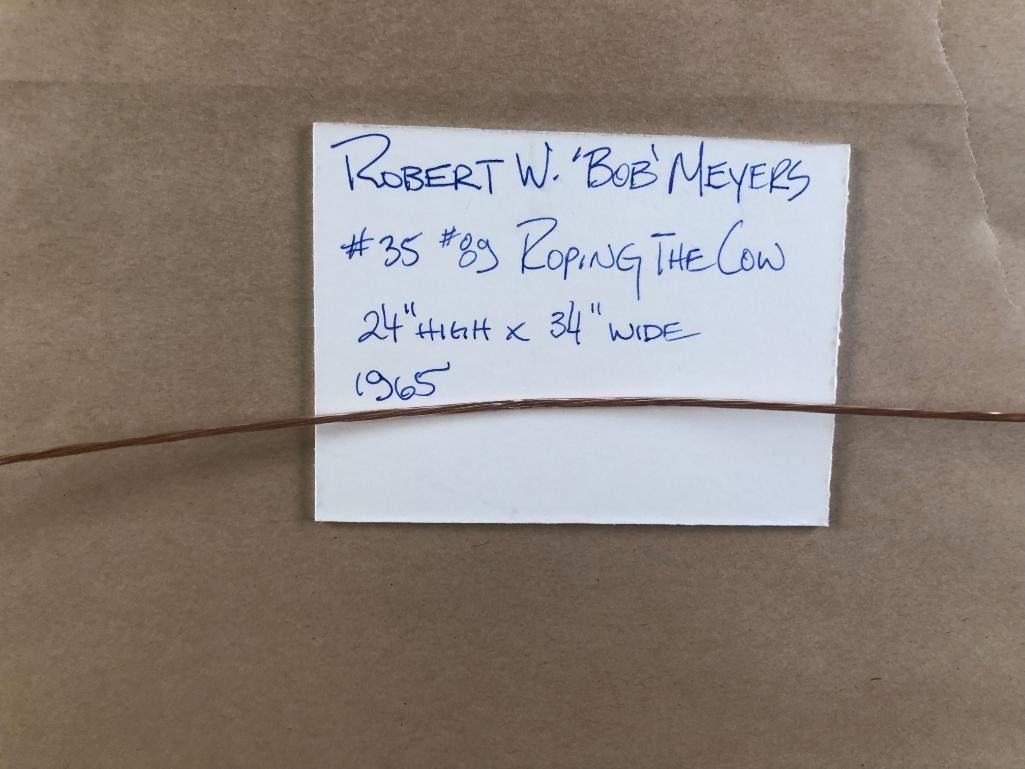 ROBERT W. 'BOB' MEYERS
#35 #89 ROPING THE COW
24" HIGH x 34" WIDE
1965